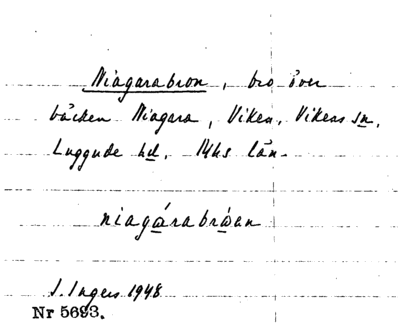 Niagarabron, bro över
bäcken Niagara, Viken, Vikens sn,
Luggude hd. Mhs län.
niagárabråan
I. Ingers 1948
Nr 5693.